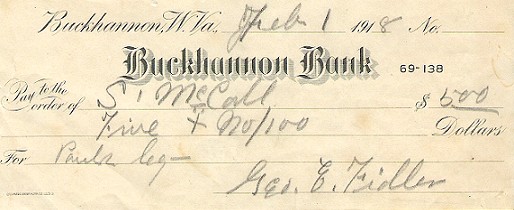 Buckhannon, W. Va., Feb 1 1918 No.
Buckhannon Bank 69-138
Pay to the order of S. McCall $ 500
Five + no/100 Dollars
For
Geo. E. Fidler